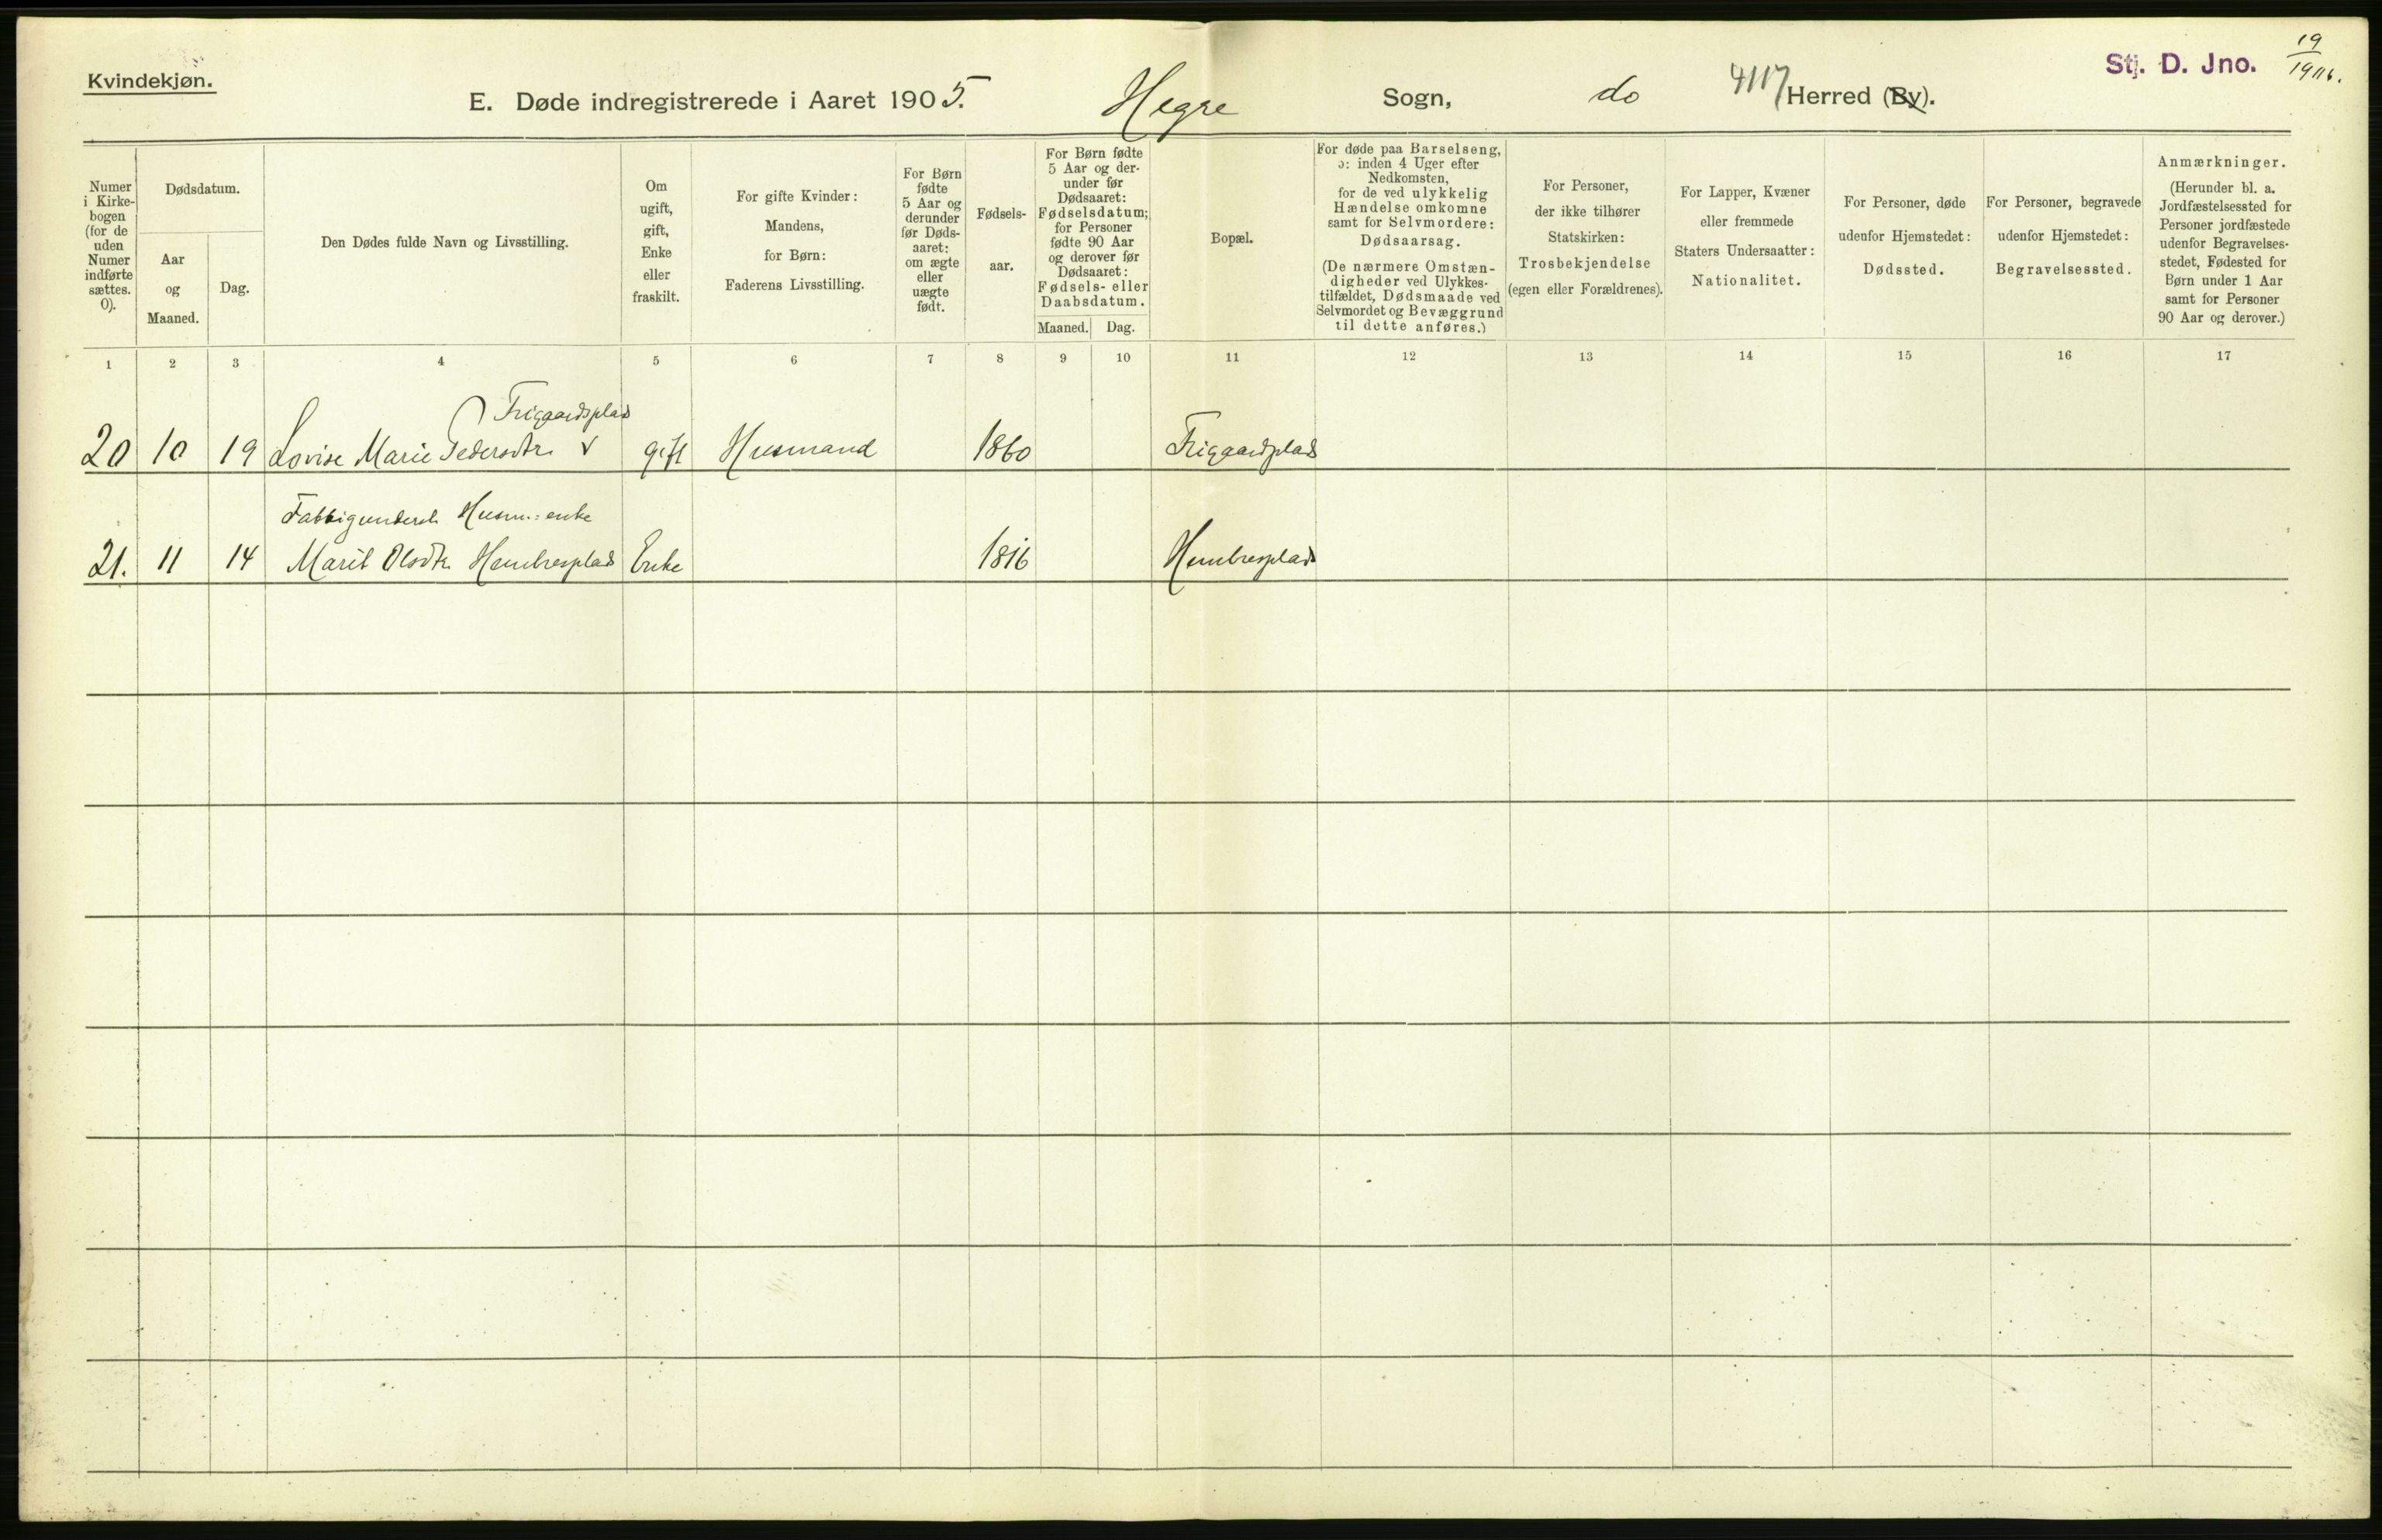 Kvindekjøn.
E. Døde indregistrerede i Aaret 1905.
Hegre Sogn, do 4117 Herred (By).
Stj. D. Jno. 19
Numer
i Kirke-
bogen
(for de
uden
Numer
indførte
sættes.
0).
Dødsdatum.
Aar
og
Maaned.
Dag.
Den Dødes fulde Navn og Livsstilling.
Om
ugift,
gift,
Enke
eller
fraskilt.
For gifte Kvinder:
Mandens,
for Børn:
Faderens Livsstilling.
For Børn
fødte
5 Aar og
derunder
før Døds-
aaret:
om ægte
eller
uægte
født.
Fødsels-
aar.
For Børn fødte
5 Aar og der-
under før
Dødsaaret:
Fødselsdatum;
for Personer
fødte 90 Aar
og derover før
Dødsaaret:
Fødsels- eller
Daabsdatum.
Maaned. Dag.
Bopæl.
For døde paa Barselseng,
ɔ: inden 4 Uger efter
Nedkomsten,
for de ved ulykkelig
Hændelse omkomne
samt for Selvmordere:
Dødsaarsag.
(De nærmere Omstæn-
digheder ved Ulykkes-
tilfældet, Dødsmaade ved
Selvmordet og Bevæggrund
til dette anføres.)
For Personer,
der ikke tilhører
Statskirken:
Trosbekjendelse
(egen eller Forældrenes).
For Lapper, Kvæner
eller fremmede
Staters Undersaatter:
Nationalitet.
For Personer, døde
udenfor Hjemstedet:
Dødssted.
For Personer, begravede
udenfor Hjemstedet:
Begravelsessted.
Anmærkninger.
(Herunder bl. a.
Jordfæstelsessted for
Personer jordfæstede
udenfor Begravelses-
stedet, Fødested for
Børn under 1 Aar
samt for Personer
90 Aar og derover.)
1 2 3 4 5 6 7 8 9 10 11 12 13 14 15 16 17
Frigaardsplads
20 10 19 Lovise Marie Pedersdtr. gift Husmand 1860 Frigaardplads
Fattigunderst. Husm.: enke
21. 11 14 Marit Olsdtr. Hembresplads Enke 1816 Hembresplads